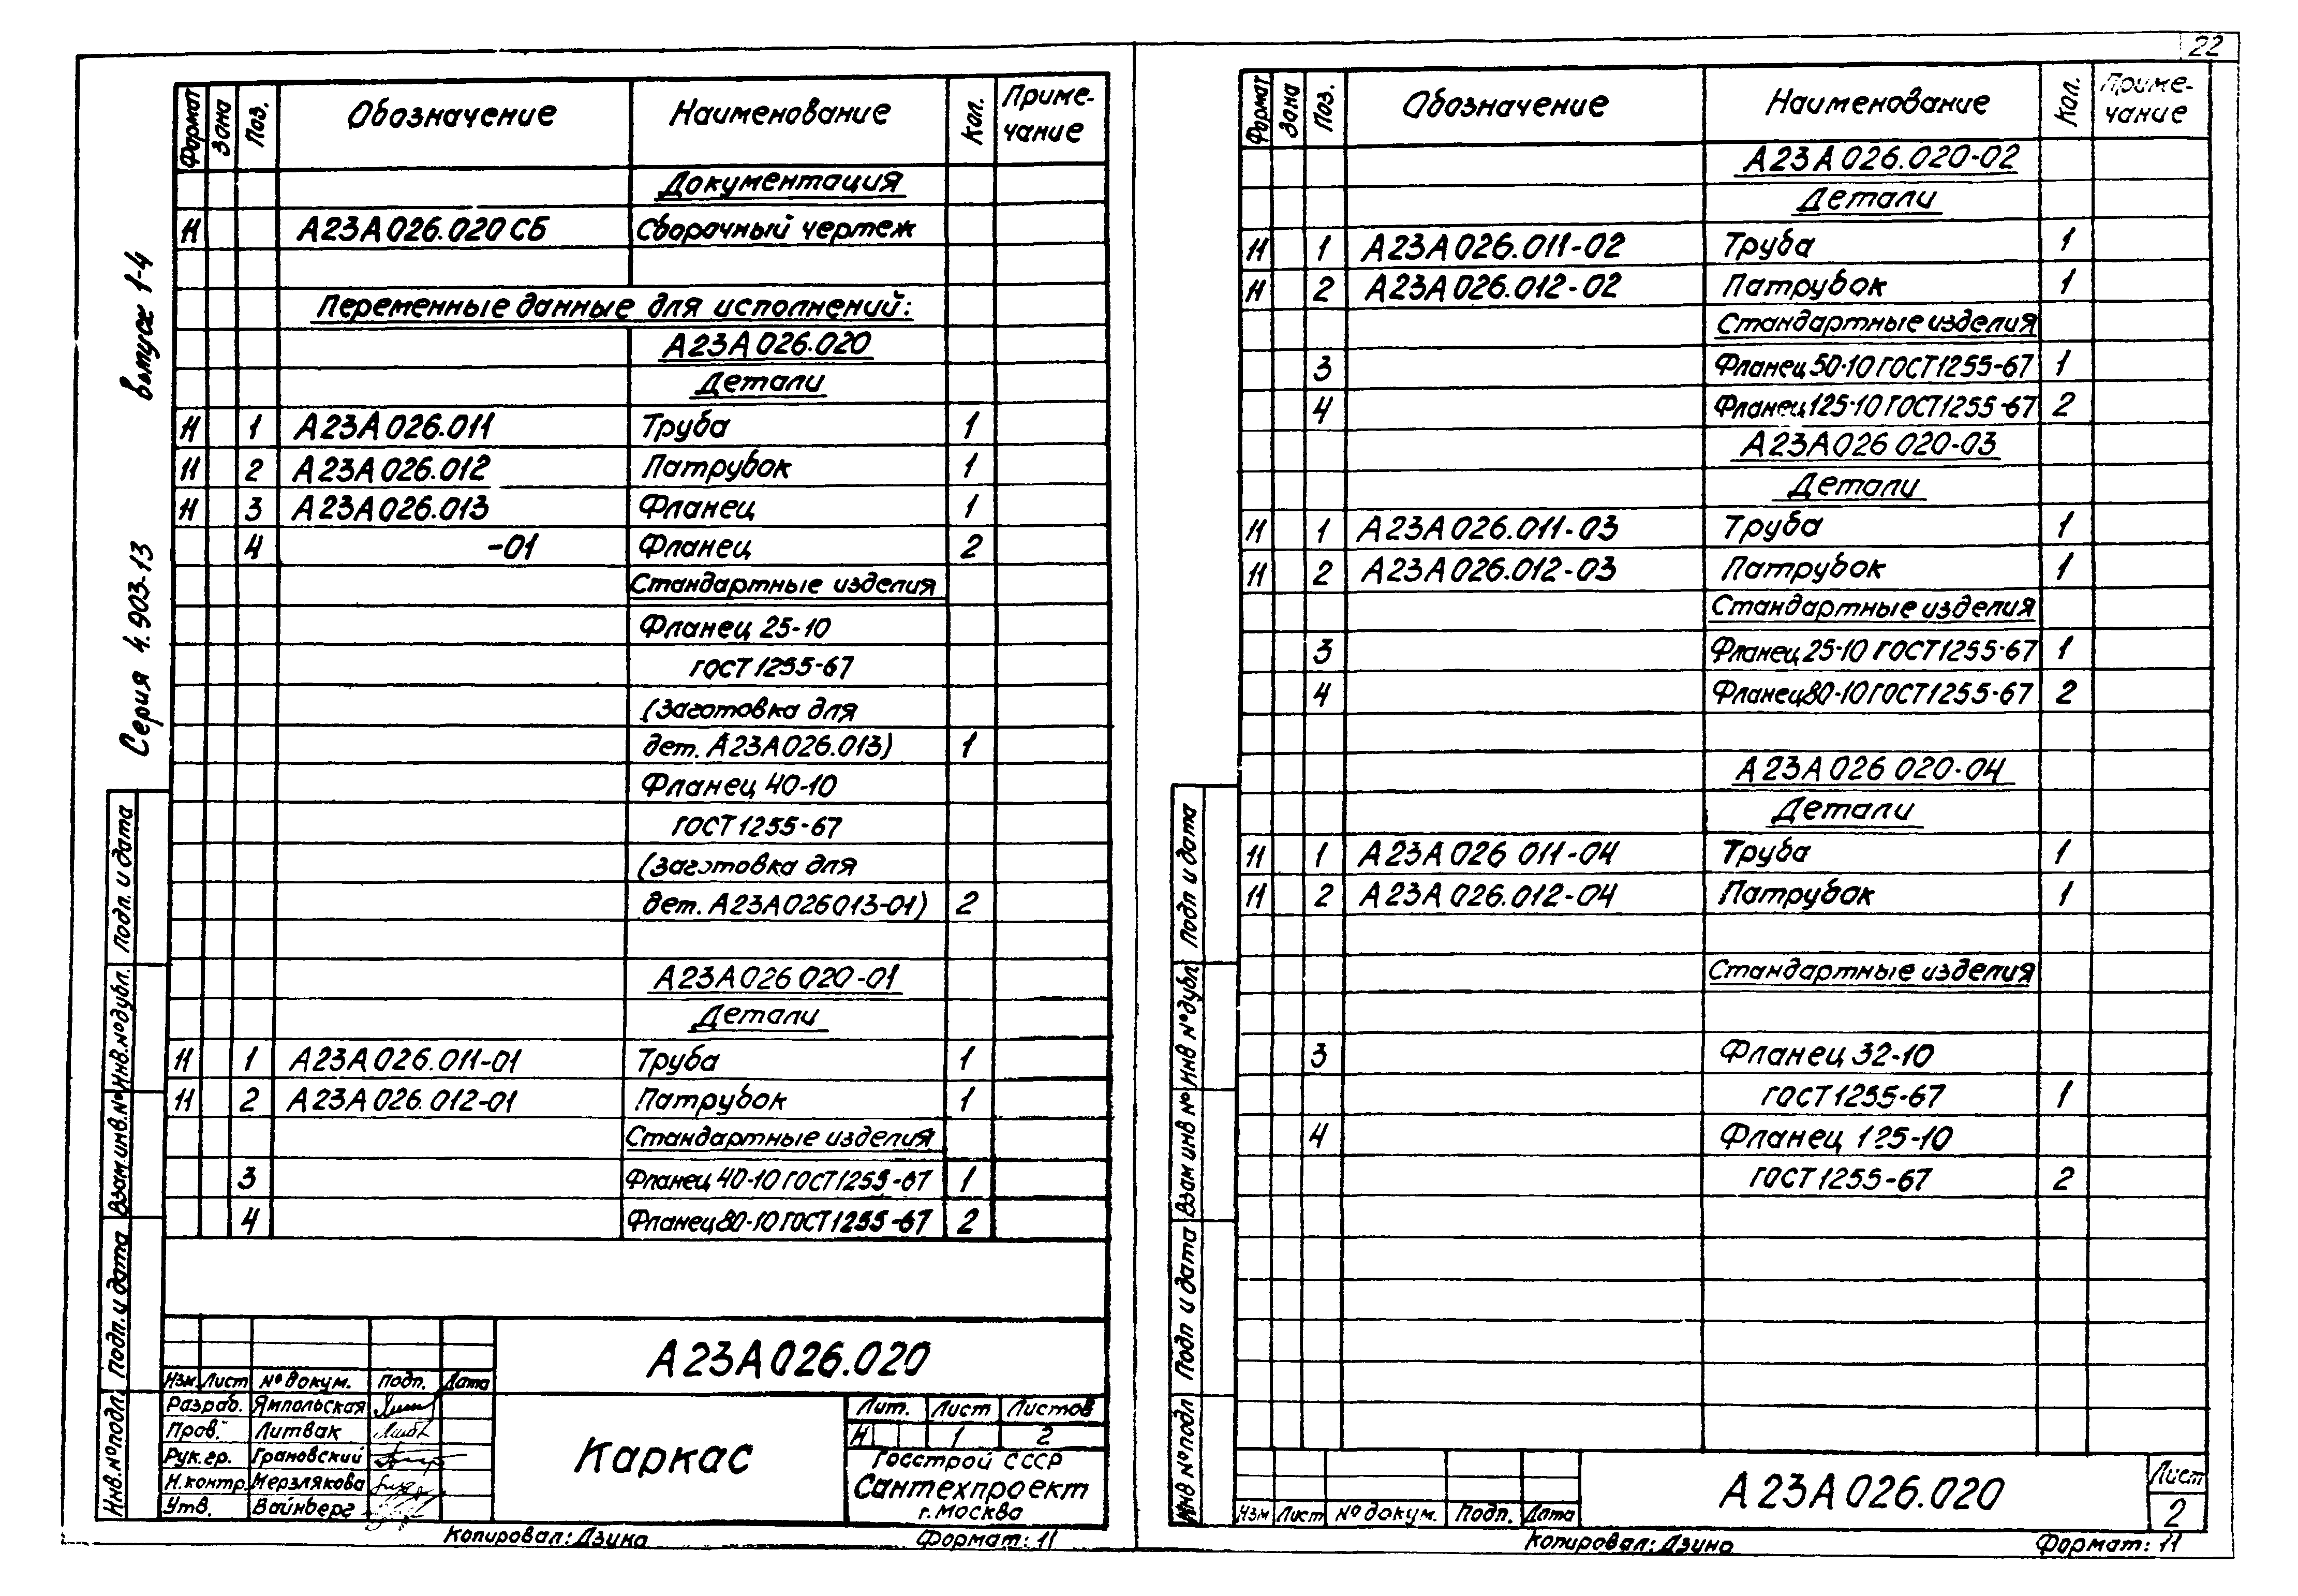 22
Серия 4.903-13 выпуск 1-4
Формат Зона Поз. Обозначение Наименование Кол. Приме-чание
Документация
11 А23А026.020 СБ Сборочный чертеж
Переменные данные для исполнений:
А23А026.020
Детали
11 1 А23А026.011 Труба 1
11 2 А23А026.012 Патрубок 1
11 3 А23А026.013 Фланец 1
4 -01 Фланец 2
Стандартные изделия
Фланец 25-10
ГОСТ 1255-67
(Заготовка для
дет. А23А026.013) 1
Фланец 40-10
ГОСТ 1255-67
(Заготовка для
дет. А23А026013-01) 2
А23А026 020-01
Детали
11 1 А23А026.011-01 Труба 1
11 2 А23А026.012-01 Патрубок 1
Стандартные изделия
3 Фланец 40-10 ГОСТ 1255-67 1
4 Фланец 80-10 ГОСТ 1255-67 2
Инв.№подл. Подп. и дата Взам.инв.№ Инв.№дубл. Подп. и дата
А23А026.020
Изм. Лист № докум. Подп. Дата
Разраб. Ямпольская
Пров. Литвак
Рук.гр. Грановский
Н.контр. Мерзлякова
Утв. Вайнберг
Каркас
Лит. Лист Листов
И 1 2
Госстрой СССР
Сантехпроект
г. Москва
Копировал: Дзино Формат: 11
Формат Зона Поз. Обозначение Наименование Кол. Приме-чание
А23А026.020-02
Детали
11 1 А23А026.011-02 Труба 1
11 2 А23А026.012-02 Патрубок 1
Стандартные изделия
3 Фланец 50-10 ГОСТ 1255-67 1
4 Фланец 125-10 ГОСТ 1255-67 2
А23А026 020-03
Детали
11 1 А23А026.011-03 Труба 1
11 2 А23А026.012-03 Патрубок 1
Стандартные изделия
3 Фланец 25-10 ГОСТ 1255-67 1
4 Фланец 80-10 ГОСТ 1255-67 2
А23А026 020-04
Детали
11 1 А23А026 011-04 Труба 1
11 2 А23А026.012-04 Патрубок 1
Стандартные изделия
3 Фланец 32-10
ГОСТ 1255-67 1
4 Фланец 125-10
ГОСТ 1255-67 2
Инв №подл Подп и дата Взам инв № Инв №дубл Подп и дата
Изм Лист № докум. Подп. Дата
А23А026.020
Лист
2
Копировал: Дзино Формат: 11